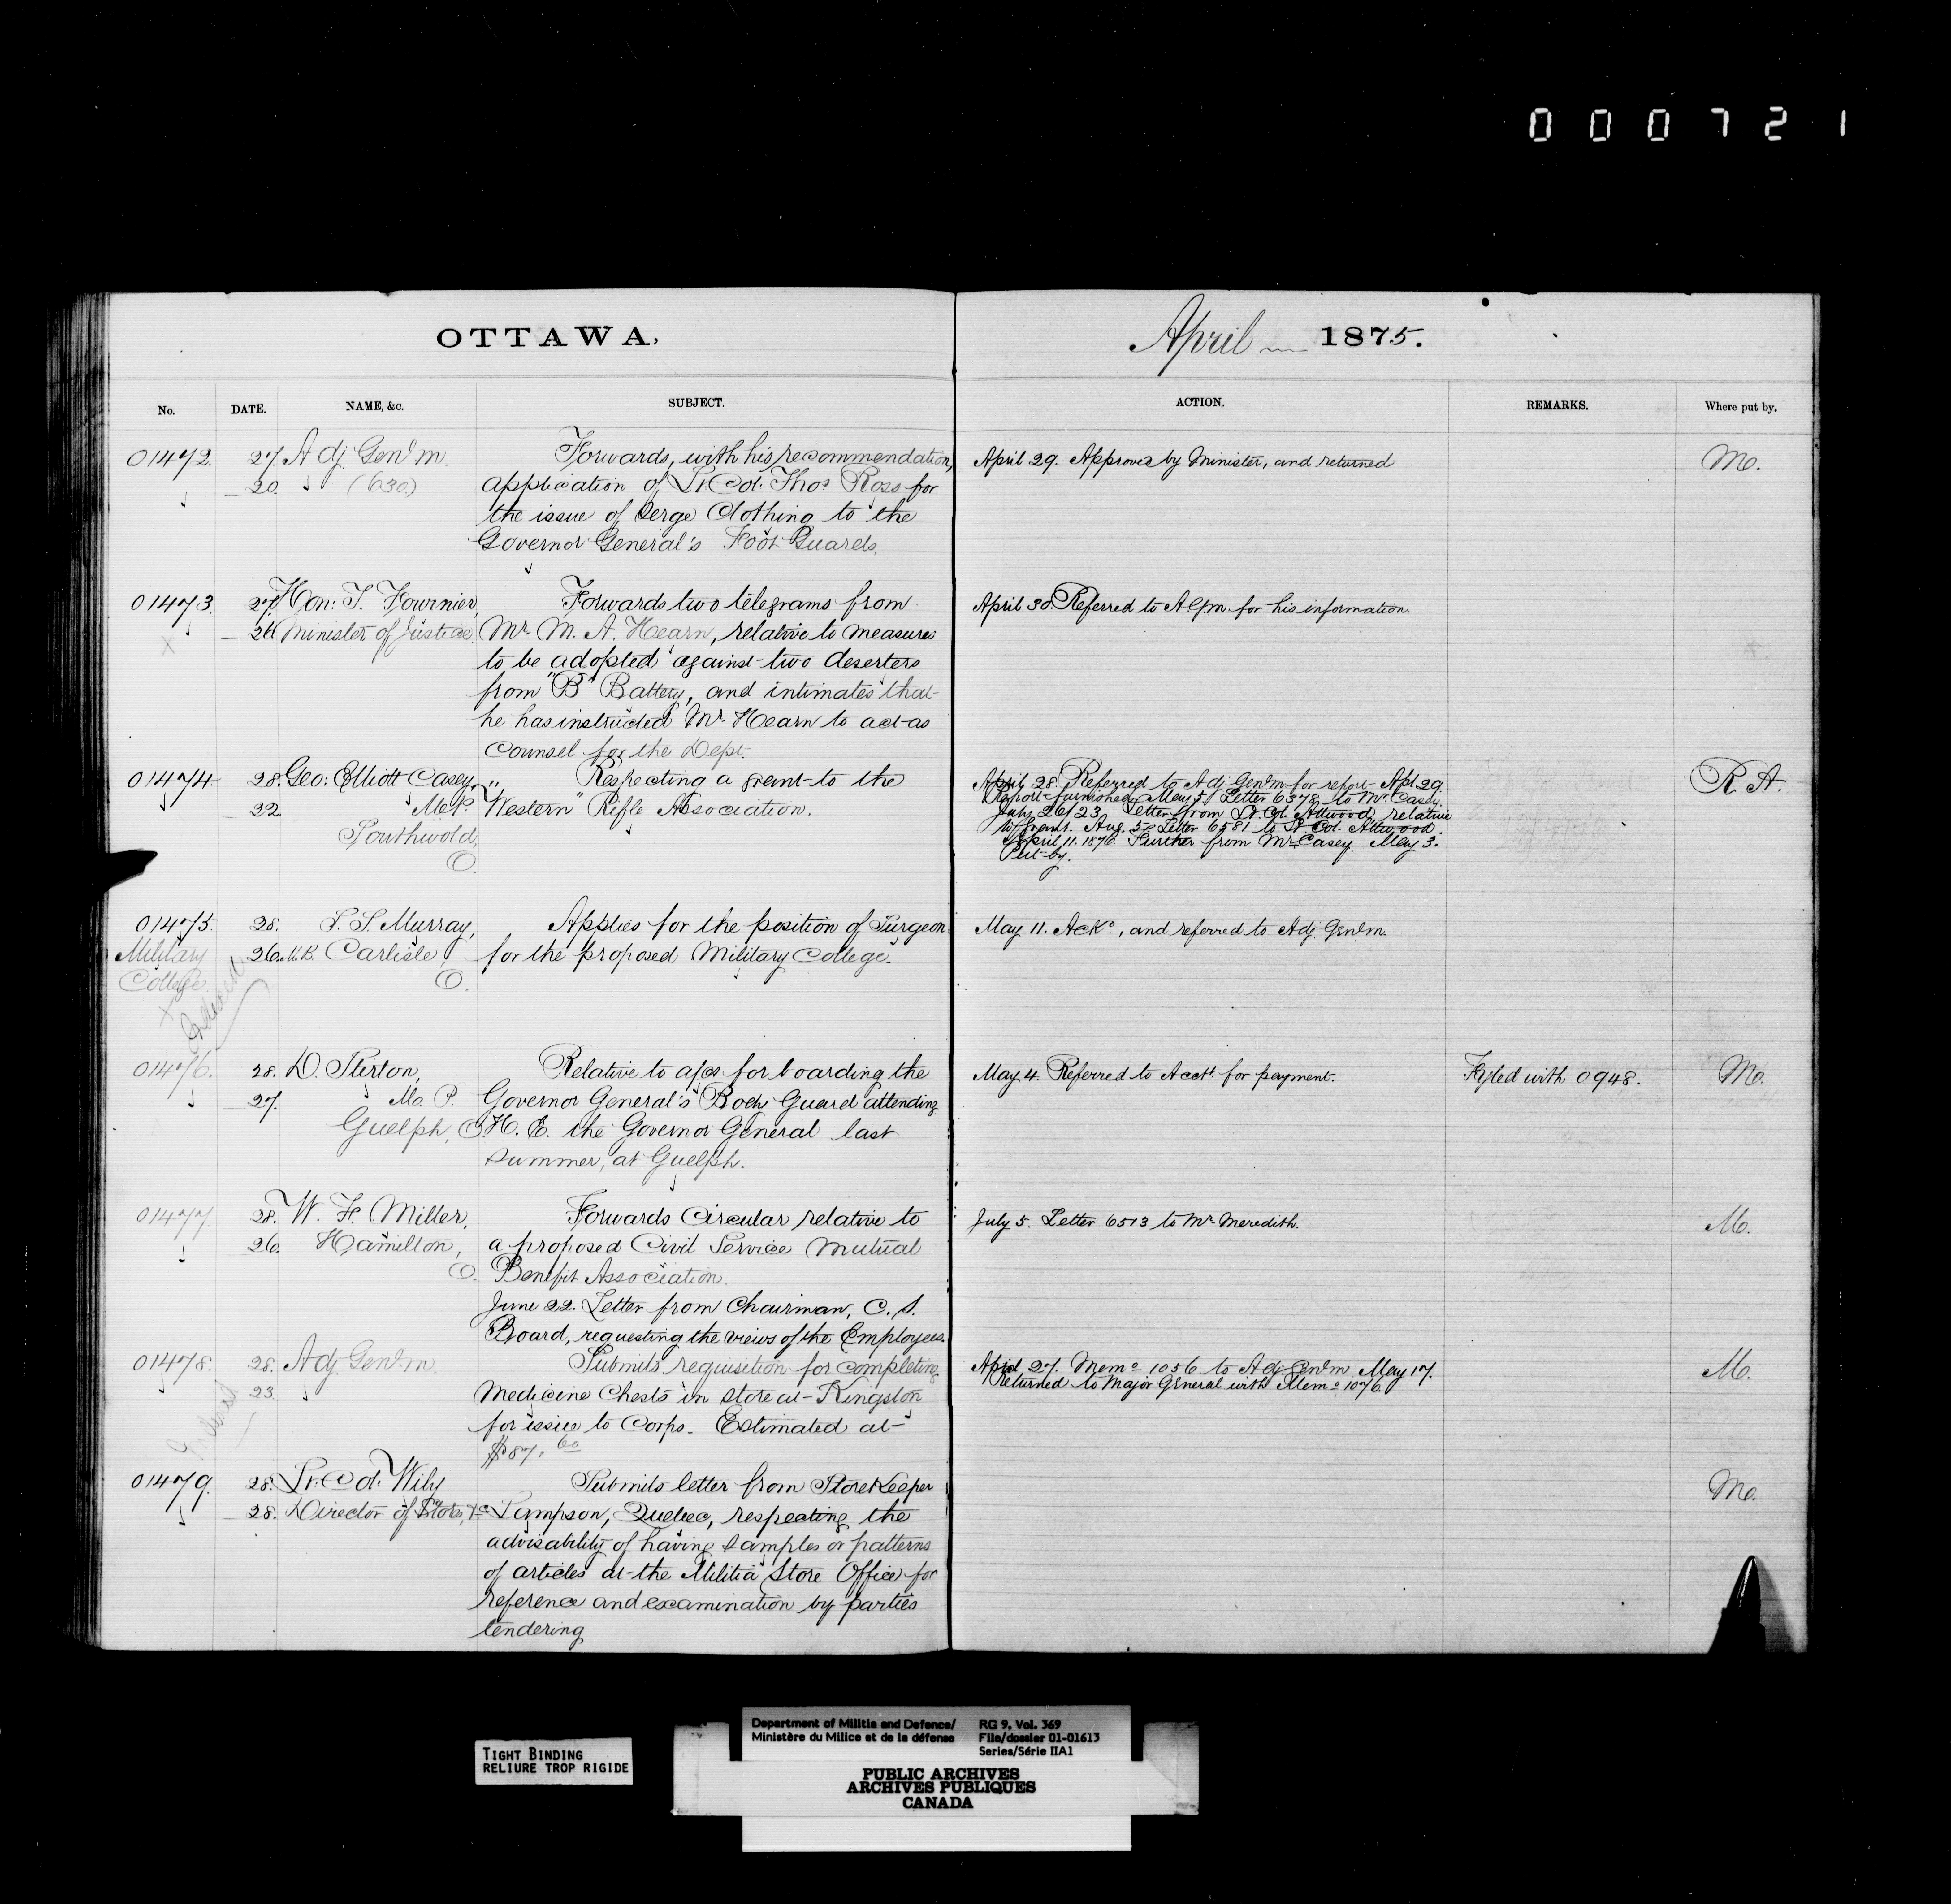 000721
OTTAWA,
April 1875.
No. DATE. NAME, &c. SUBJECT. ACTION. REMARKS. Where put by.
01472. 27. Adj. Genl. M. Forwards, with his recommendation, April 29. Approved by Minister, and returned M.
20. (630.) application of Lt. Col. Thos. Ross for
the issue of Serge Clothing to the
Governor General's Foot Guards.
01473. 27. Hon: T. Fournier, Forwards two telegrams from April 30. Referred to A.G.M. for his information.
26. Minister of Justice. Mr. M. A. Hearn, relative to measures
to be adopted against two deserters
from "B" Battery, and intimates that
he has instructed Mr. Hearn to act as
Counsel for the Dept.
01474. 28. Geo: Elliott Casey, Respecting a grant to the April 28. Referred to Adj. Genl. M for report Apl. 29. R. A.
22. M. P. "Western" Rifle Association. Report furnished May 5/ Letter 6378 to Mr. Casey.
Southwold, July 26/23 Letter from Lt. Col. Attwood, relative
O. to grant. Aug. 5. Letter 6581 to Lt. Col. Attwood.
April 11. 1876 Further from Mr. Casey. May 3.
Put-by.
01475. 28. Murray, Applies for the position of Surgeon May 11. Ackd., and referred to Adj. Genl. M.
Military 26. Carlisle, for the proposed Military College.
College. O.
01476. 28. D. Stirton, Relative to a/cs for boarding the May 4. Referred to Acctt. for payment. Fyled with 0948. M.
27. M. P. Governor General's Body Guard attending
Guelph, O. H. E. the Governor General last
summer, at Guelph.
01477. 28. W. F. Miller, Forwards Circular relative to July 5. Letter 6513 to Mr. Meredith. M.
26. Hamilton, a proposed Civil Service Mutual
O. Benefit Association.
June 22. Letter from Chairman, C. S.
Board, requesting the views of the Employees.
01478. 28. Adj. Genl. M. Submits requisition for completing April 27. Memo. 1056 to Adj. Genl. M. May 17. M.
23. Medicine Chests in store at Kingston Returned to Major General with Memo. 1076.
for issue to Corps. Estimated at
$87.60
01479. 28. Lt. Col. Wily Submits letter from Store Keeper M.
28. Director of Stores, &c Lampson, Quebec, respecting the
advisability of having samples or patterns
of articles at the Militia Store Office for
reference and examination by parties
tendering
TIGHT BINDING
RELIURE TROP RIGIDE
Department of Militia and Defence/ RG 9, Vol. 369
Ministère du Milice et de la défense File/dossier 01-01613
Series/Série IIA1
PUBLIC ARCHIVES
ARCHIVES PUBLIQUES
CANADA